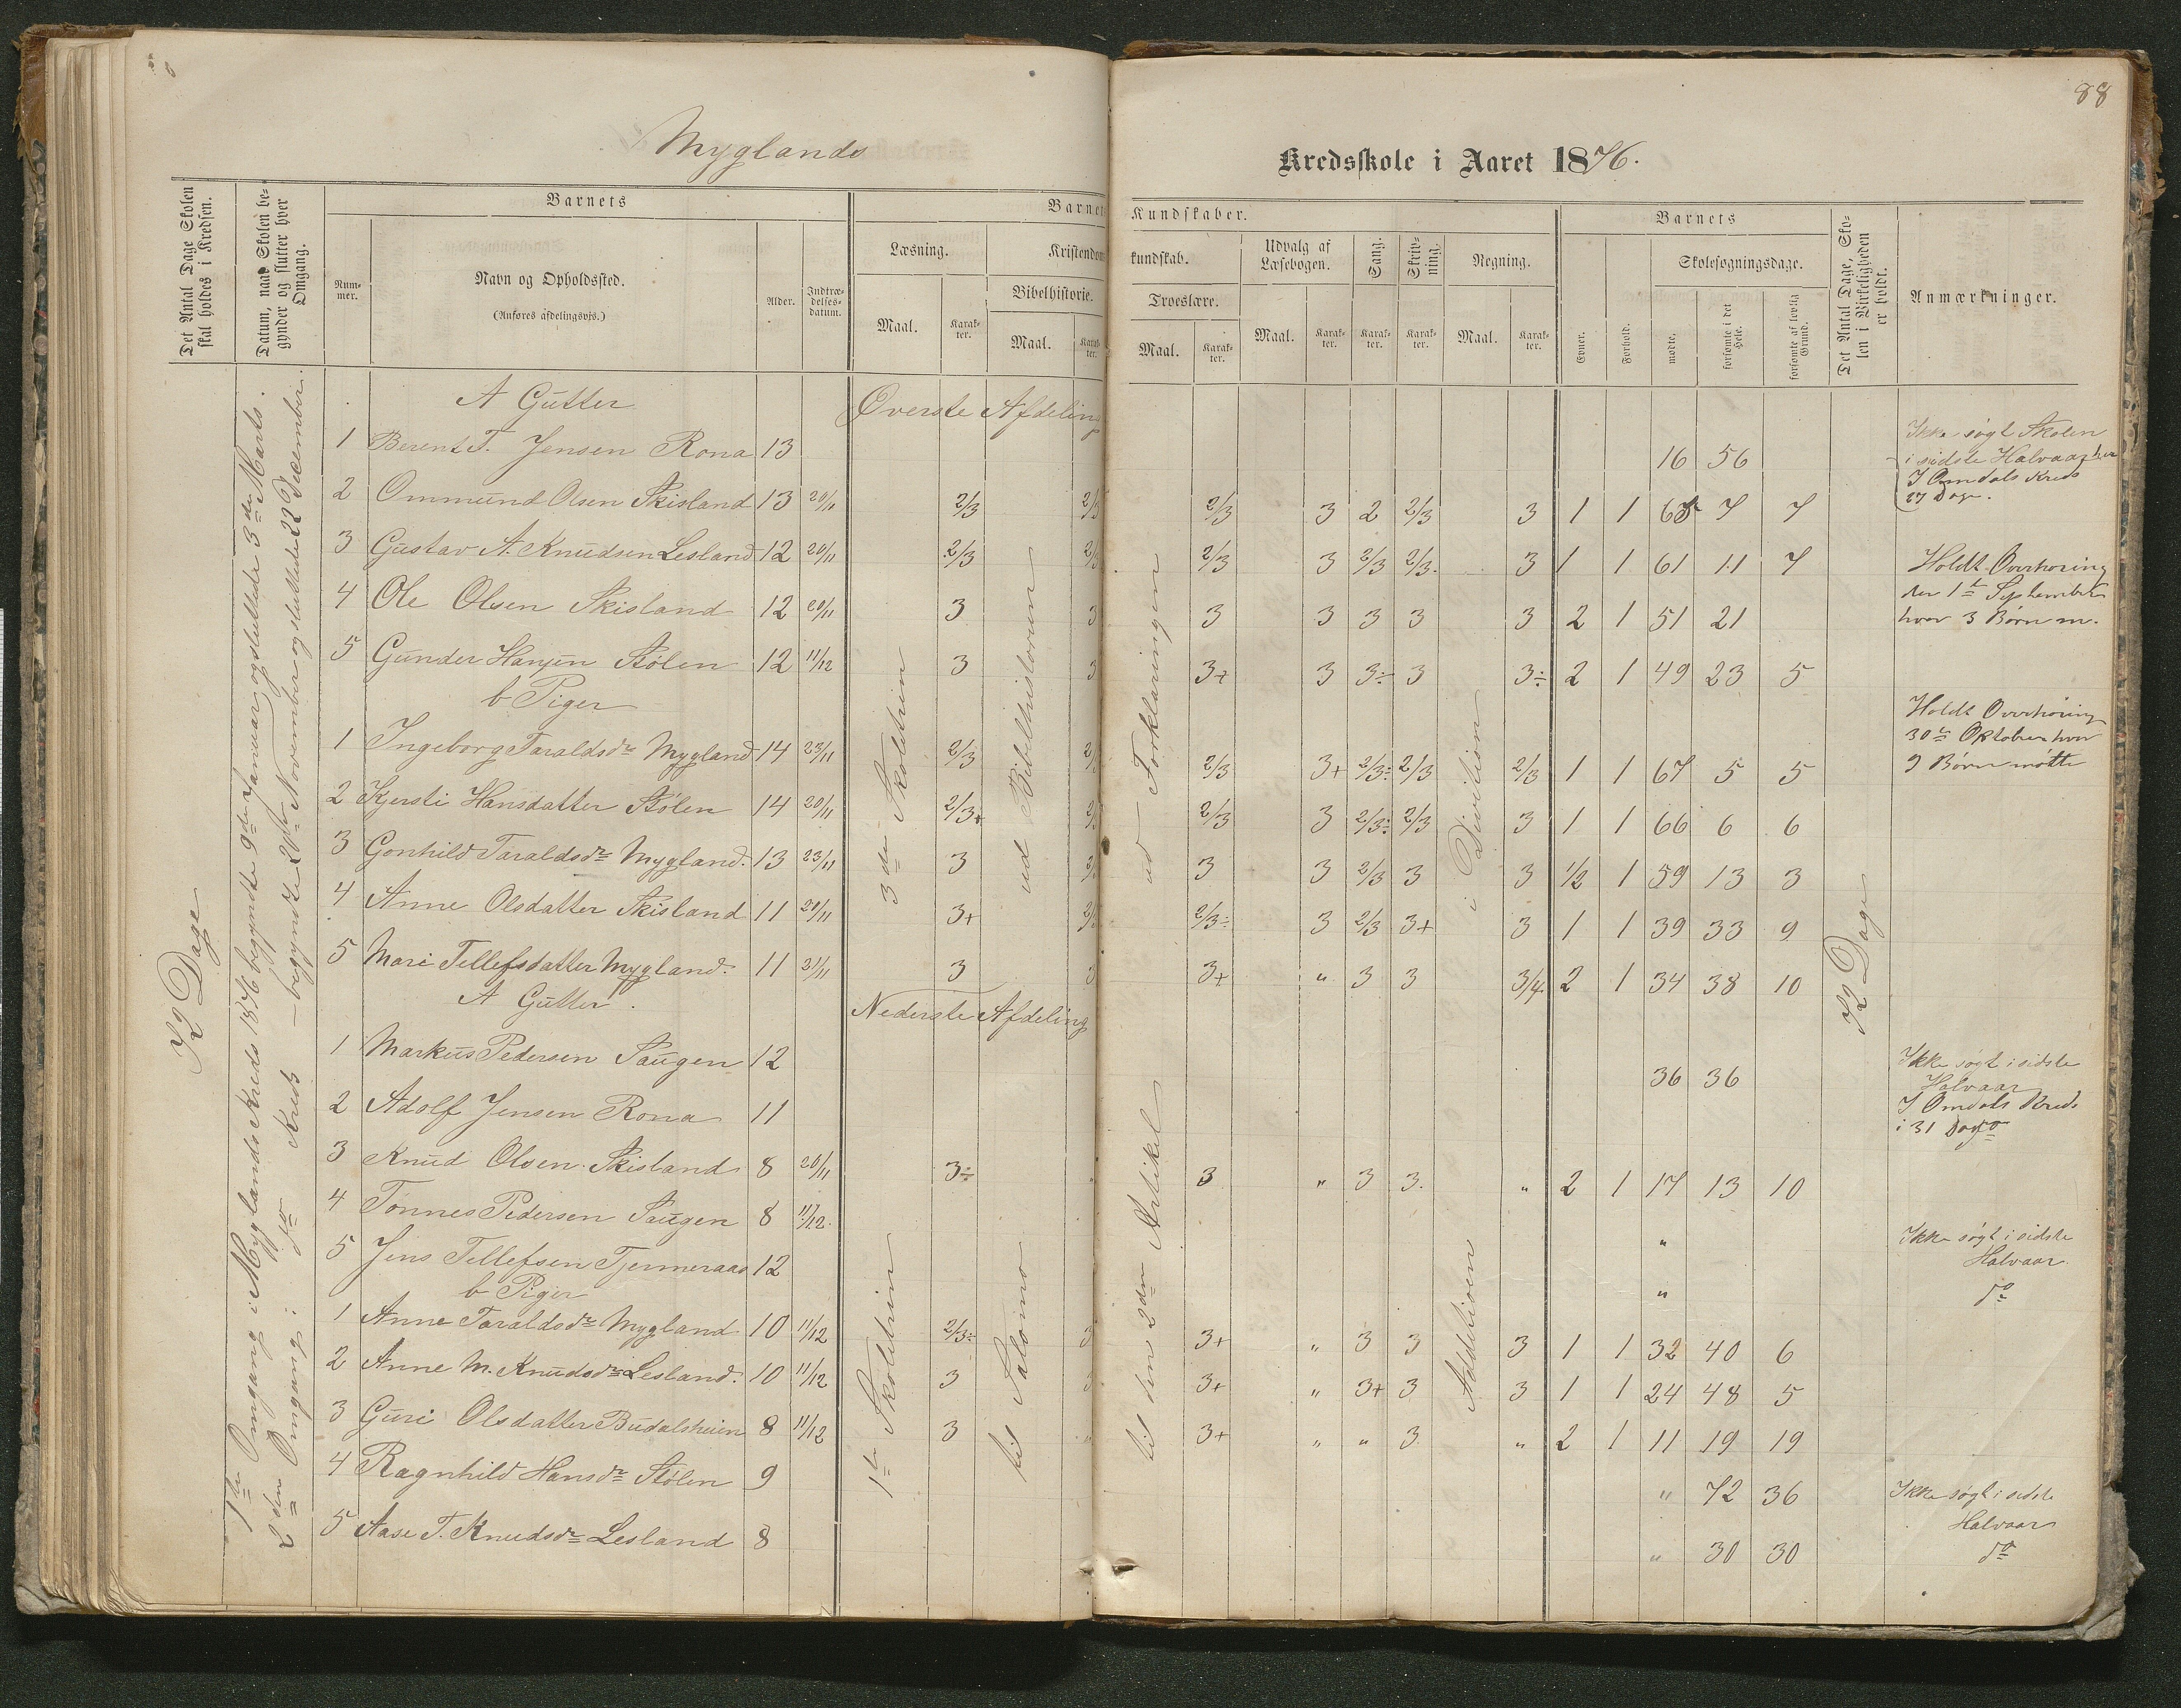 88
Myglands Kredsskole i Aaret 1876.
Det Antal Dage Skolen skal holdes i Kredsen.
Datum, naar Skolen begynder og slutter hver Omgang.
Barnets
Nummer.
Navn og Opholdssted.
(Anføres afdelingsvis.)
Alder.
Indtrædelsesdatum.
Barnets Kundskaber.
Læsning.
Maal.
Karakter.
Kristendomskundskab.
Bibelhistorie.
Maal.
Karakter.
Troeslære.
Maal.
Karakter.
Udvalg af Læsebogen.
Maal.
Karakter.
Sang.
Karakter.
Skrivning.
Karakter.
Regning.
Maal.
Karakter.
Barnets
Evner.
Forhold.
Skolesøgningsdage.
mødte.
forsømte i det Hele.
forsømte af lovlig Grund.
Det Antal Dage, Skolen i Virkeligheden er holdt.
Anmærkninger.
72 Dage
1ste Omgang i Myglands Kreds 1876 begyndte 9de Januar og sluttede 3de Marts.
2den Omgang i do Kreds – begyndte 20de November og sluttede 22 December.
A Gutter Øverste Afdeling
1 Berent T. Jensen Rona 13 16 56 Ikke søgt Skolen
i sidste Halvaar her
I Omdals Kreds
27 Dage.
2 Ommund Olsen Skisland 13 20/11 2/3 2/3 2/3 3 2 2/3 3 1 1 65 7 7
3 Gustav A. Knudsen Lesland 12 20/11 2/3 2/3 2/3 3 2/3 2/3 3 1 1 61 11 7 Holdt Overhøring
den 1te September
hvor 3 Børn m.
4 Ole Olsen Skisland 12 20/11 3 3 3 3 3 3 3 2 1 51 21
5 Gunder Hansen Stølen 12 11/12 3 3 3+ 3 3÷ 3 3÷ 2 1 49 23 5
3de Skoletrin
ud Bibelhistorien
ud Forklaringen
i Division
b Piger
1 Ingeborg Taraldsdr Mygland 14 23/11 2/3 2/3 2/3 3+ 2/3÷ 2/3 2/3 1 1 67 5 5 Holdt Overhøring
30te Oktober hvor
9 Børn møtte
2 Kjersti Hansdatter Stølen 14 20/11 2/3+ 2/3 2/3 3 2/3÷ 2/3 3 1 1 66 6 6
3 Gonhild Taraldsdr Mygland. 13 23/11 3 3 3 2/3 3 3 1/2 1 59 13 3
4 Anne Olsdatter Skisland 11 20/11 3+ 2/3÷ 3 2/3 3+ 3 1 1 39 33 9
5 Mari Tellefsdatter Mygland. 11 21/11 3 3 3+ " 3 3 3/4 2 1 34 38 10
72 Dage
A Gutter. Nederste Afdeling
1 Markus Pedersen Saugen 12 36 36 Ikke søgt i sidste
Halvaar
2 Adolf Jensen Rona 11 I Omdals Kreds
i 31 Dage
3 Knud Olsen Skisland 8 20/11 3÷ " 3 " 3 3. " 2 1 17 13 10
4 Tønnes Pedersen Saugen 8 11/12. " Ikke søgt i sidste
Halvaar.
5 Jens Tellefsen Tjermeraas 12 " do
1te Skoletrin
til Salomo
til den 2den Artikel
Additionen
b Piger
1 Anne Taraldsdr Mygland 10 11/12 2/3÷ 3 3+ " 3 3 3 1 1 32 40 6
2 Anne M. Knudsdr Lesland. 10 11/12 3 3 3+ " 3+ 3 3 1 1 24 48 5
3 Guri Olsdatter Budalsheien 8 11/12 3 " 3+ " " 3 " 2 1 11 19 19
4 Ragnhild Hansdr Stølen 9 " 72 36 Ikke søgt i sidste
Halvaar
5 Aase T. Knudsdr Lesland 8 " 30 30 do